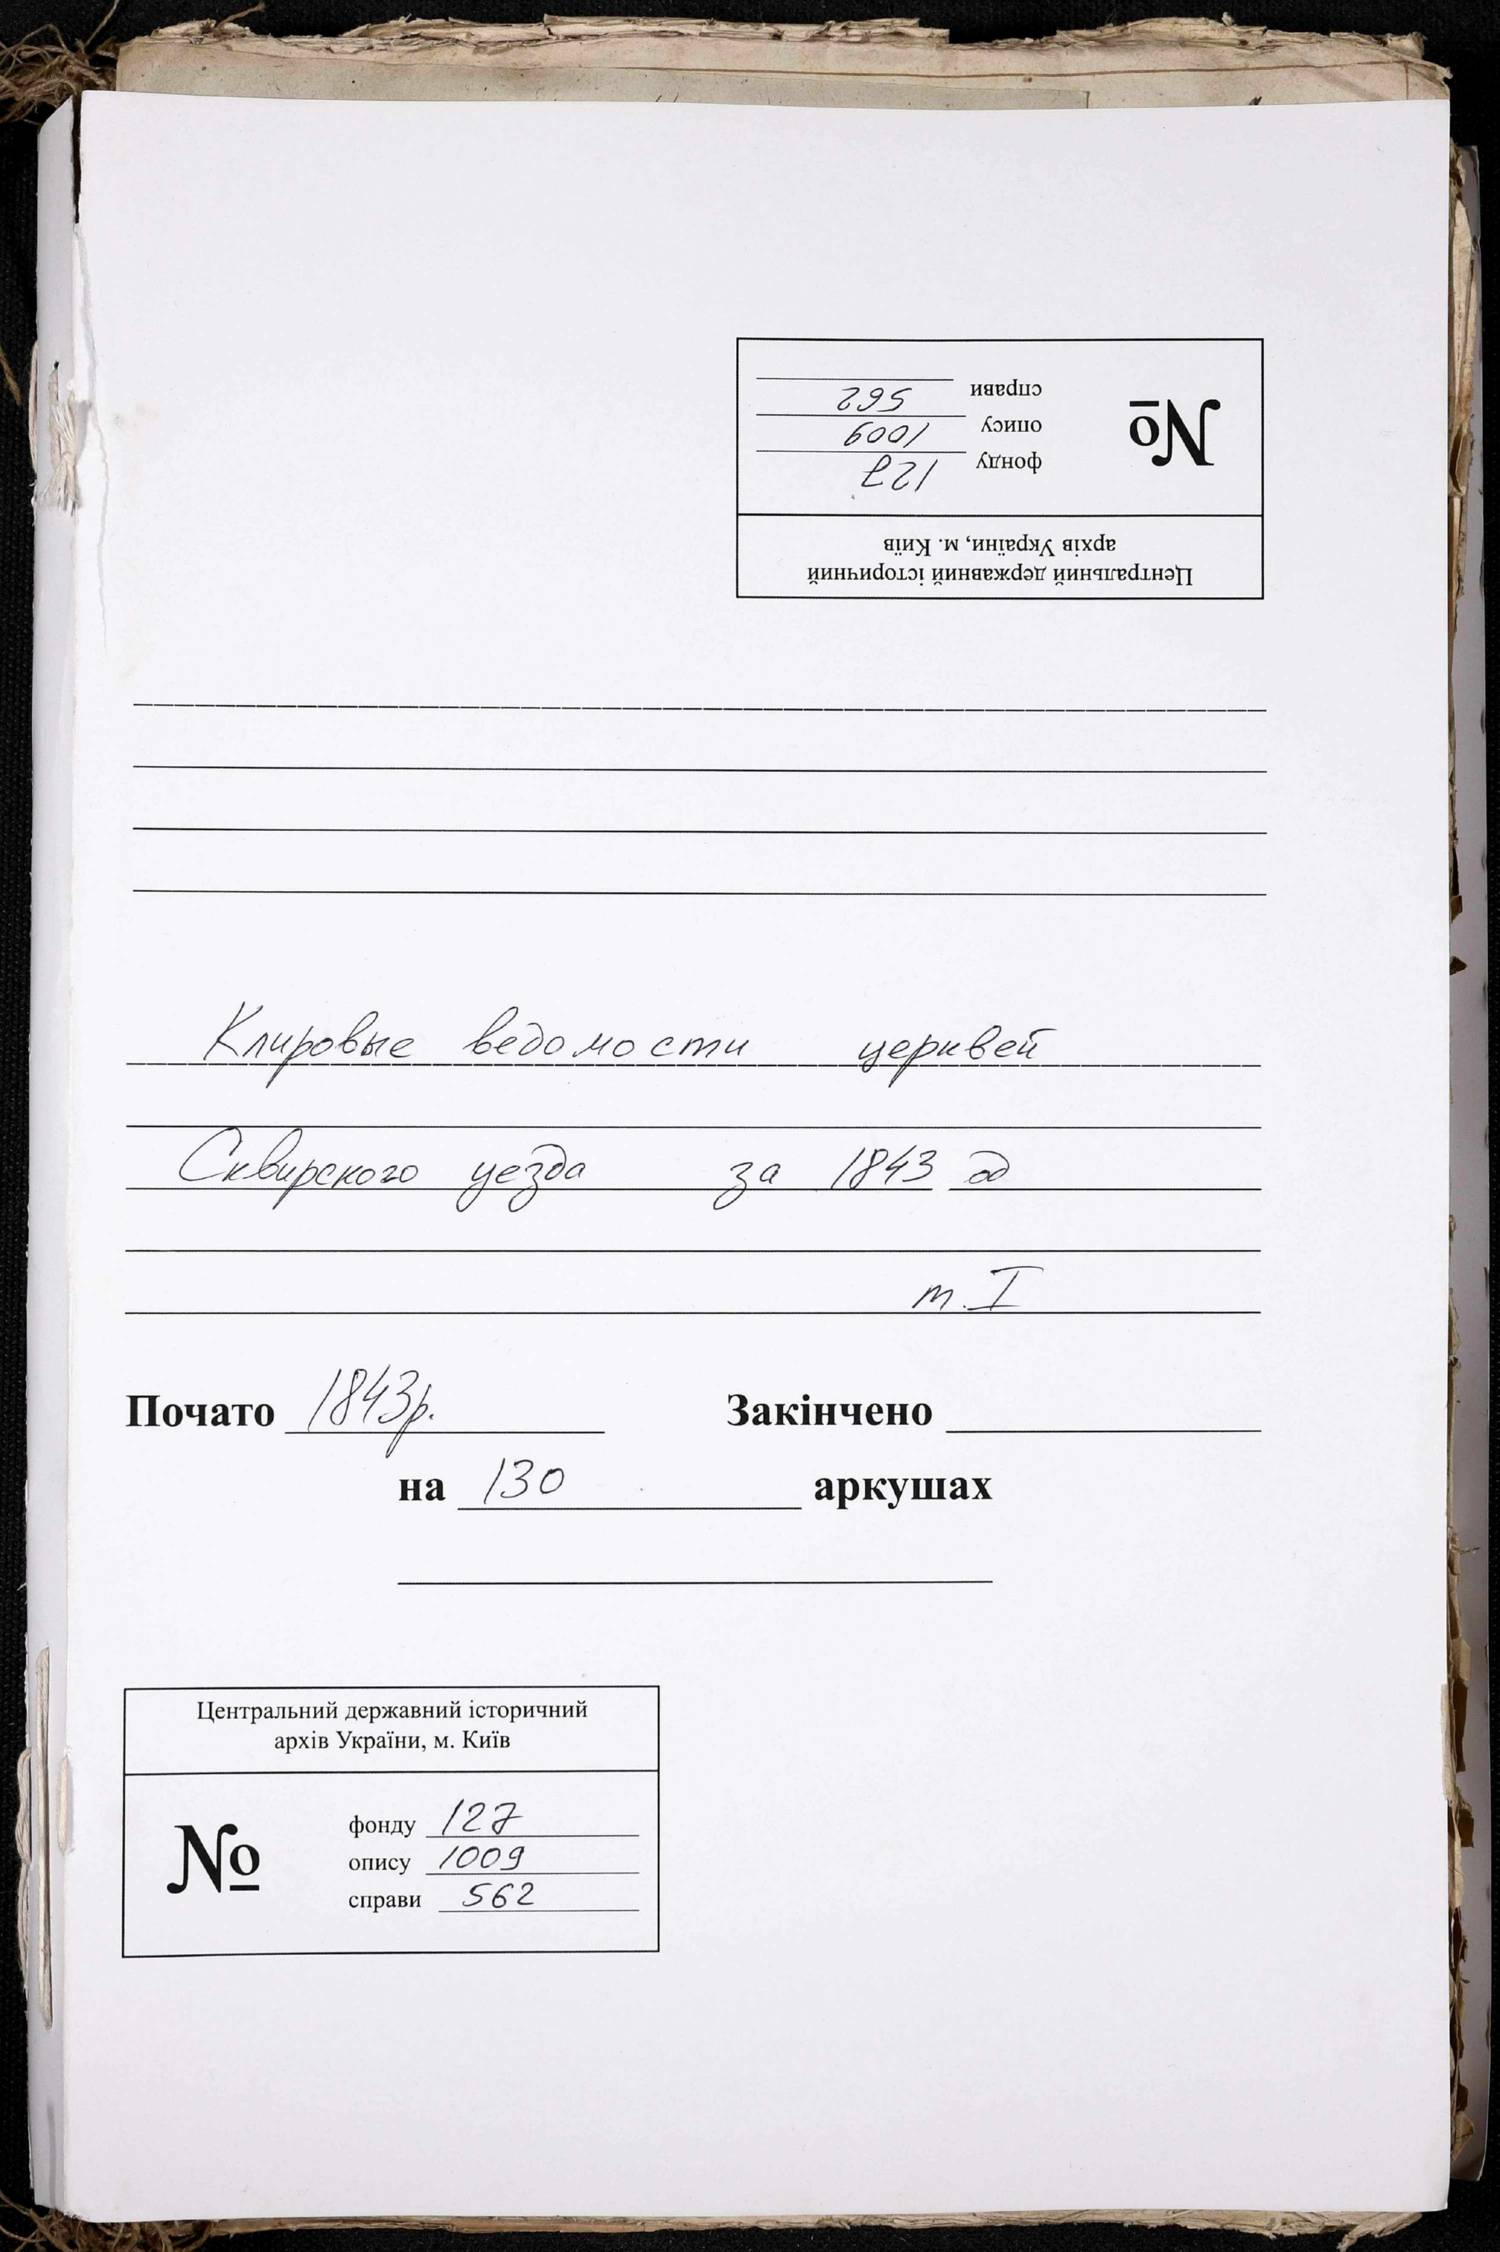 Центральний державний історичний
архів України, м. Київ
№
фонду 127
опису 1009
справи 562
Клировые ведомости церквей
Сквирского уезда за 1843 год
т. I
Почато 1843р. Закінчено
на 130 аркушах
Центральний державний історичний
архів України, м. Київ
№
фонду 127
опису 1009
справи 562